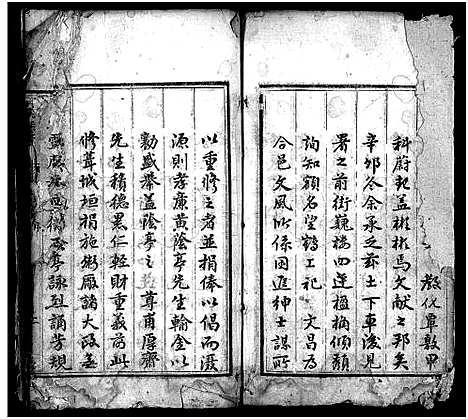 教化覃敷甲
科蔚起盖彬彬焉文献之邦矣
辛卯冬余承乏兹土下車後見
署之前街巍樓四逹楹桷傾頽
詢知額名望鶴上祀文昌為
合邑文風所係因進紳士謀所
以重修之者並捐俸以倡而溉
源則孝廉黄蔭亭先生輸金以
勷盛舉盖蔭亭之尊甫厚齋
先生積德累仁輕財重義前此
修葺城垣捐施粥廠諸大政
亭詠烈誦芳規